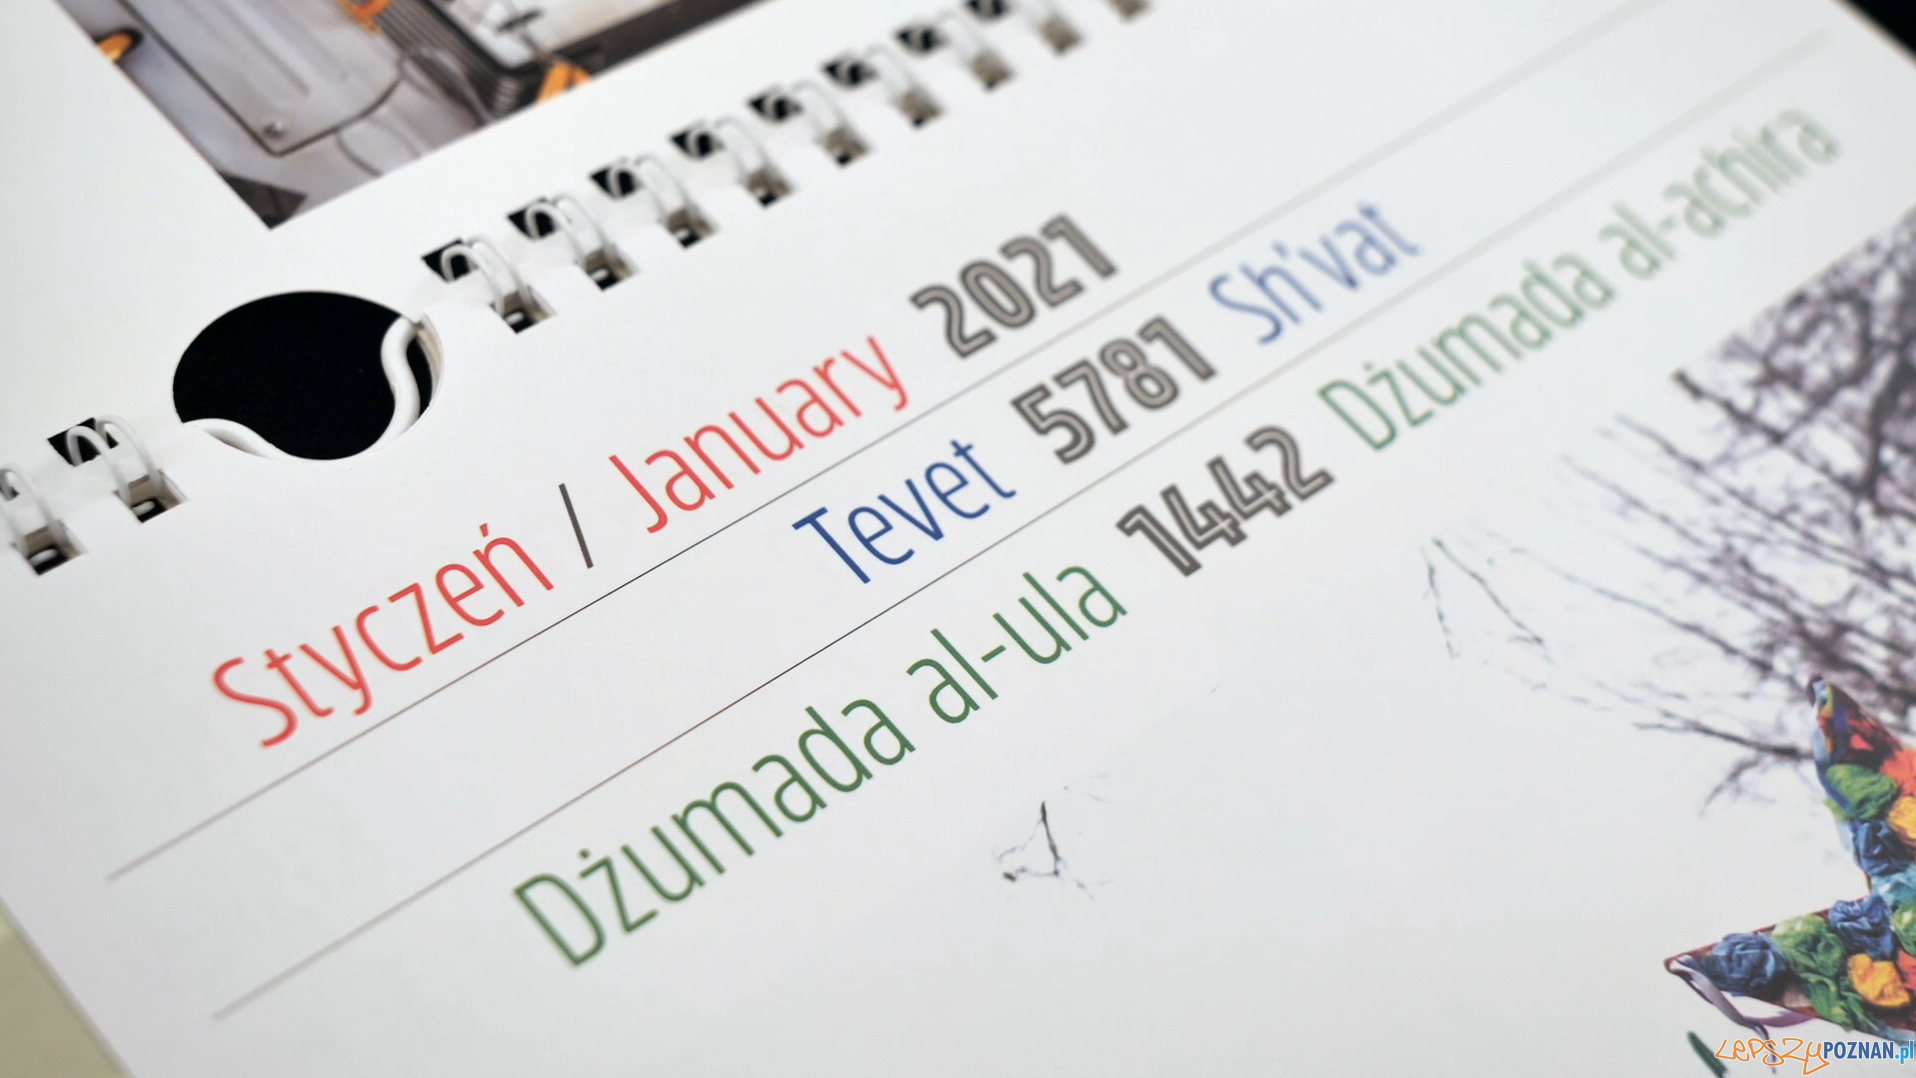 Styczeń / January 2021
Tevet 5781 Sh'vat
Dżumada al-ula 1442 Dżumada al-achira
LEPSZY POZNAN.pl